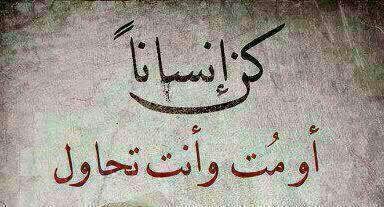 كن إنساناً
أو مُت وأنت تحاول